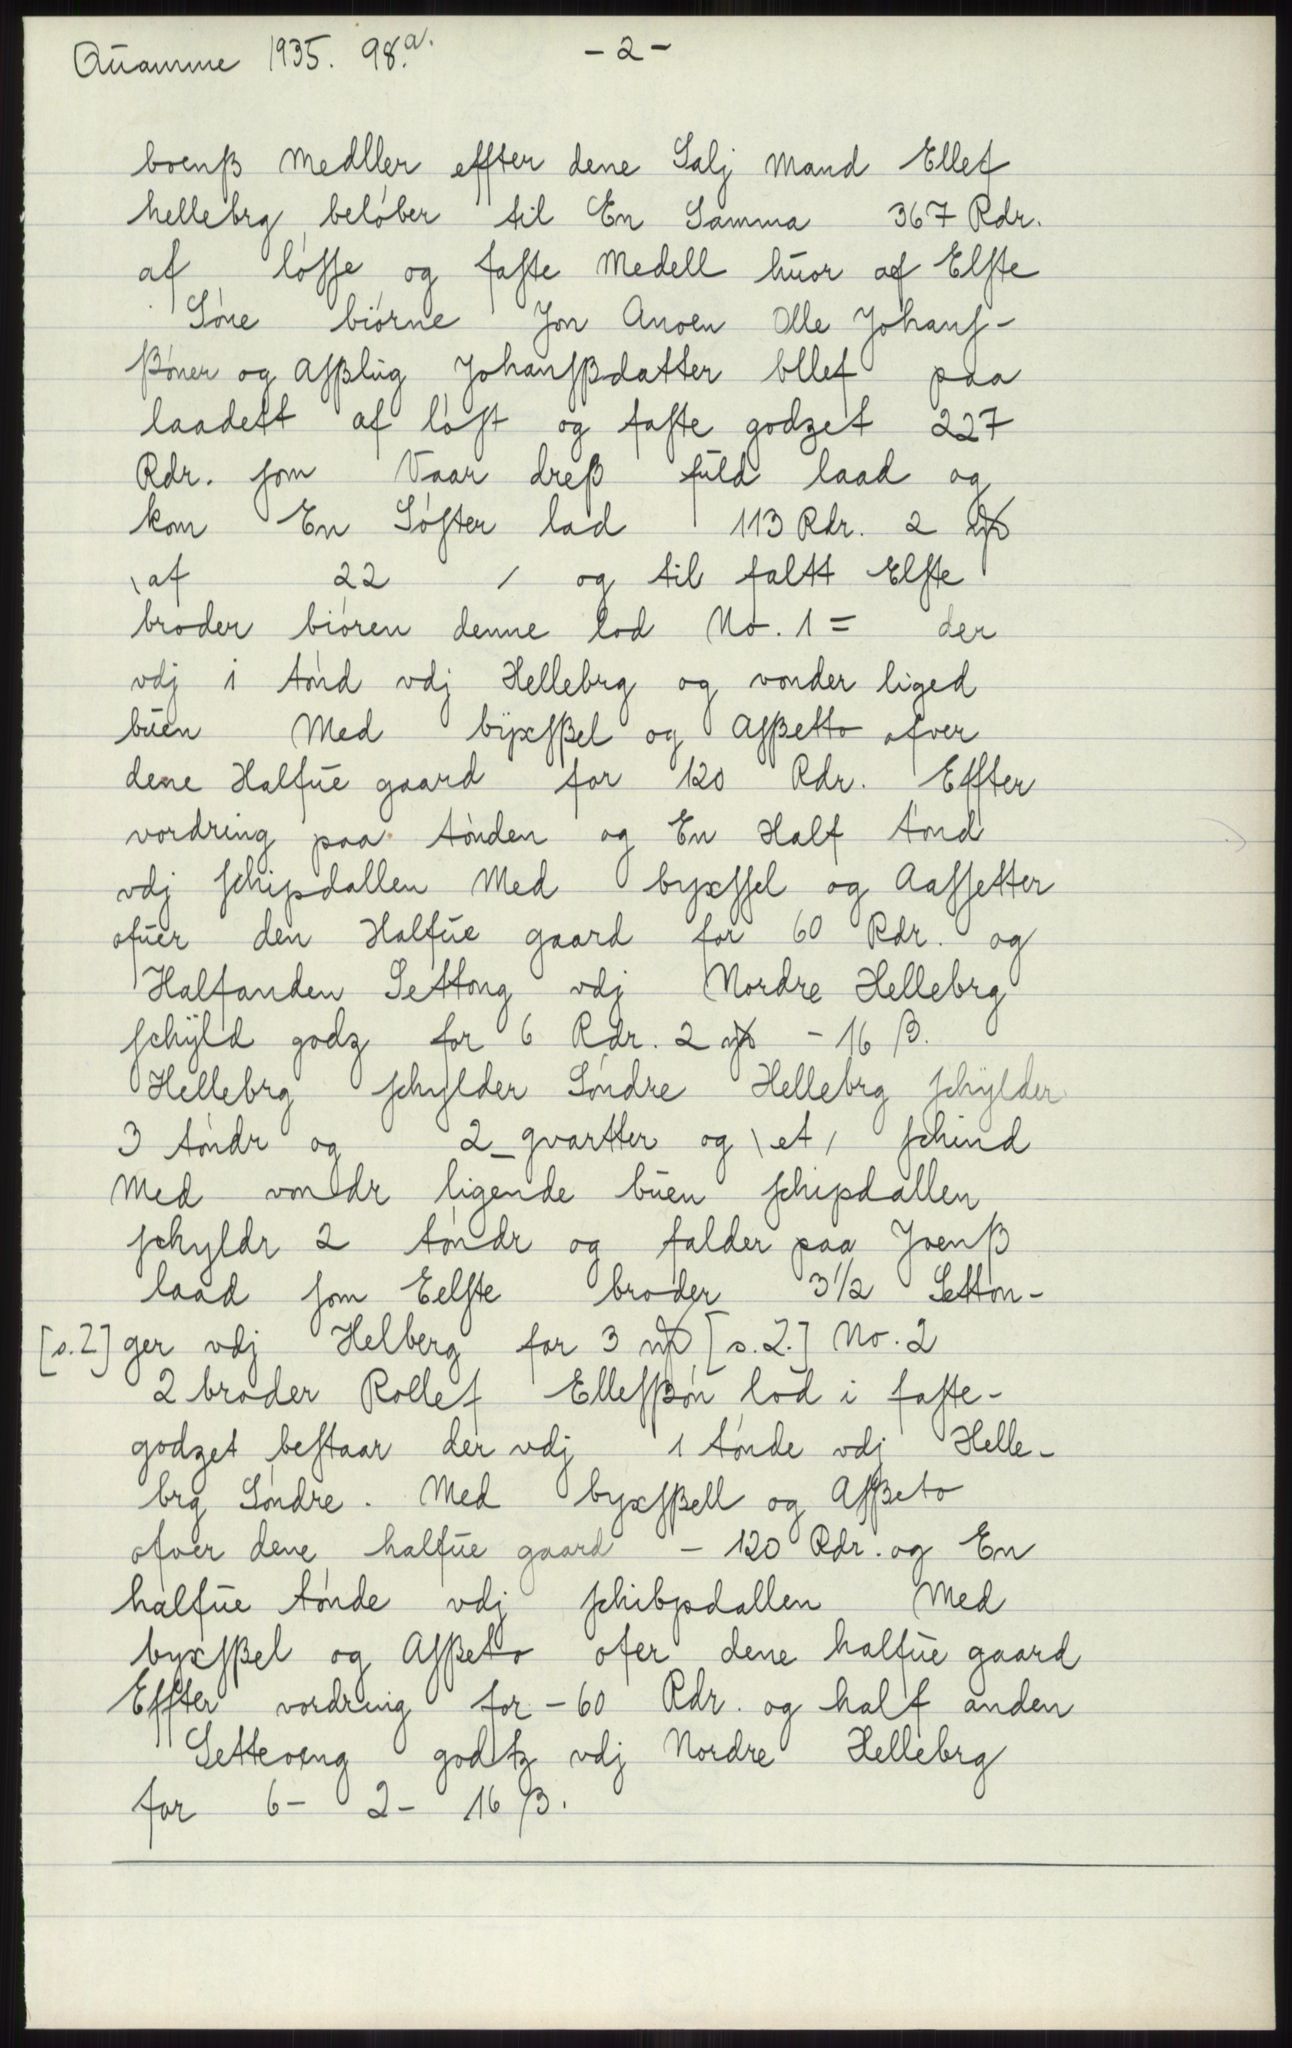 Qūamme 1935. 98.a. - 2 -
boenß Medller effter dene Salj Mand Ellef
hellebrg belöber til En Samma 367 Rdr.
af lösse og faste Medell huor af Elste
Söne biörne Jon Anoen Olle Johans-
ßöner og Asßlūg Johansßdatter bllef paa
laadett af löst og faste godzet 227
Rdr. som Vaar dreß fūld laad og
kom En Söster lad 113 Rdr. 2 mk
\af 22 / og til faltt Elste
broder biören denne lod No. 1 = der
vdj 1 tönd vdj Hellebrg og vonder liged
būen Med bÿxsßel og Asßetto ofver
dene Halfūe gaard for 120 Rdr. Effter
vordring paa tönden og En Half tönd
vdj schipdallen Med byxssel og Aassetter
ofuer den Halfūe gaard for 60 Rdr. og
Halfanden Settong vdj Nordre Hellebrg
schÿld godz for 6 Rdr. 2 mk - 16 ß.
Hellebrg schylder Söndre Hellebrg schÿlder
3 töndr og 2 qvartter og \et/ schind
Med vondr ligende būen schipdallen
schyldr 2 töndr og falder paa Jvenß
laad som Eelste broder 3 1/2 Setton-
[s.2] ger vdj Helberg for 3 mk [s.2.] No. 2
2 broder Rollef Ellefsßön lod i faste-
godzet bestaar der vdj 1 tönde vdj Helle-
brg Söndre. Med byxsßell og Asßeto
ofver dene halfūe gaard - 120 Rdr. og En
halfūe tönde vdj schibpdallen Med
byxsßel og Asßeto ofer dene halfūe gaard
Effter vordring for - 60 Rdr. og half anden
Setteoeng godtz vdj Nordre Hellebrg
for 6 - 2 - 16 ß.